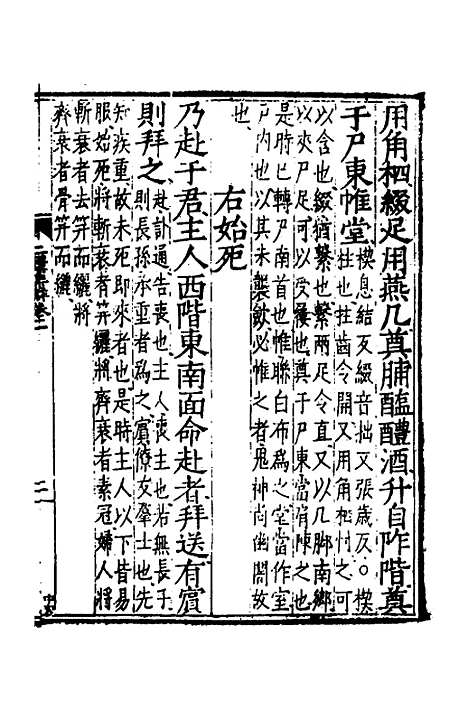 用角柶綴足用燕几奠脯醢醴酒升自阼階奠
于尸東帷堂
楔息結反綴音拙又張歲反○楔
柱也拄齒令開又用角柶之可
以含也綴猶繫也繫兩足令直又以几脚南鄉
以夾尸足可以受屨也奠于尸東當陳之也
是時已轉尸南首也帷聯白布為之堂當作室
戶内也以其未襲斂必帷之者鬼神尚幽闇故
也
右始死
乃赴于君主人西階東南面命赴者拜送有賓
則拜之
赴訃通告喪也主人喪主也若無長子
則長孫承重者為之賓僚友羣士也先
知疾重故未死即來者也是時主人以下皆易
服始死將斬衰者笄纚將齊衰者素冠婦人將
斬衰者去笄而纚將
齊衰者骨笄而纚